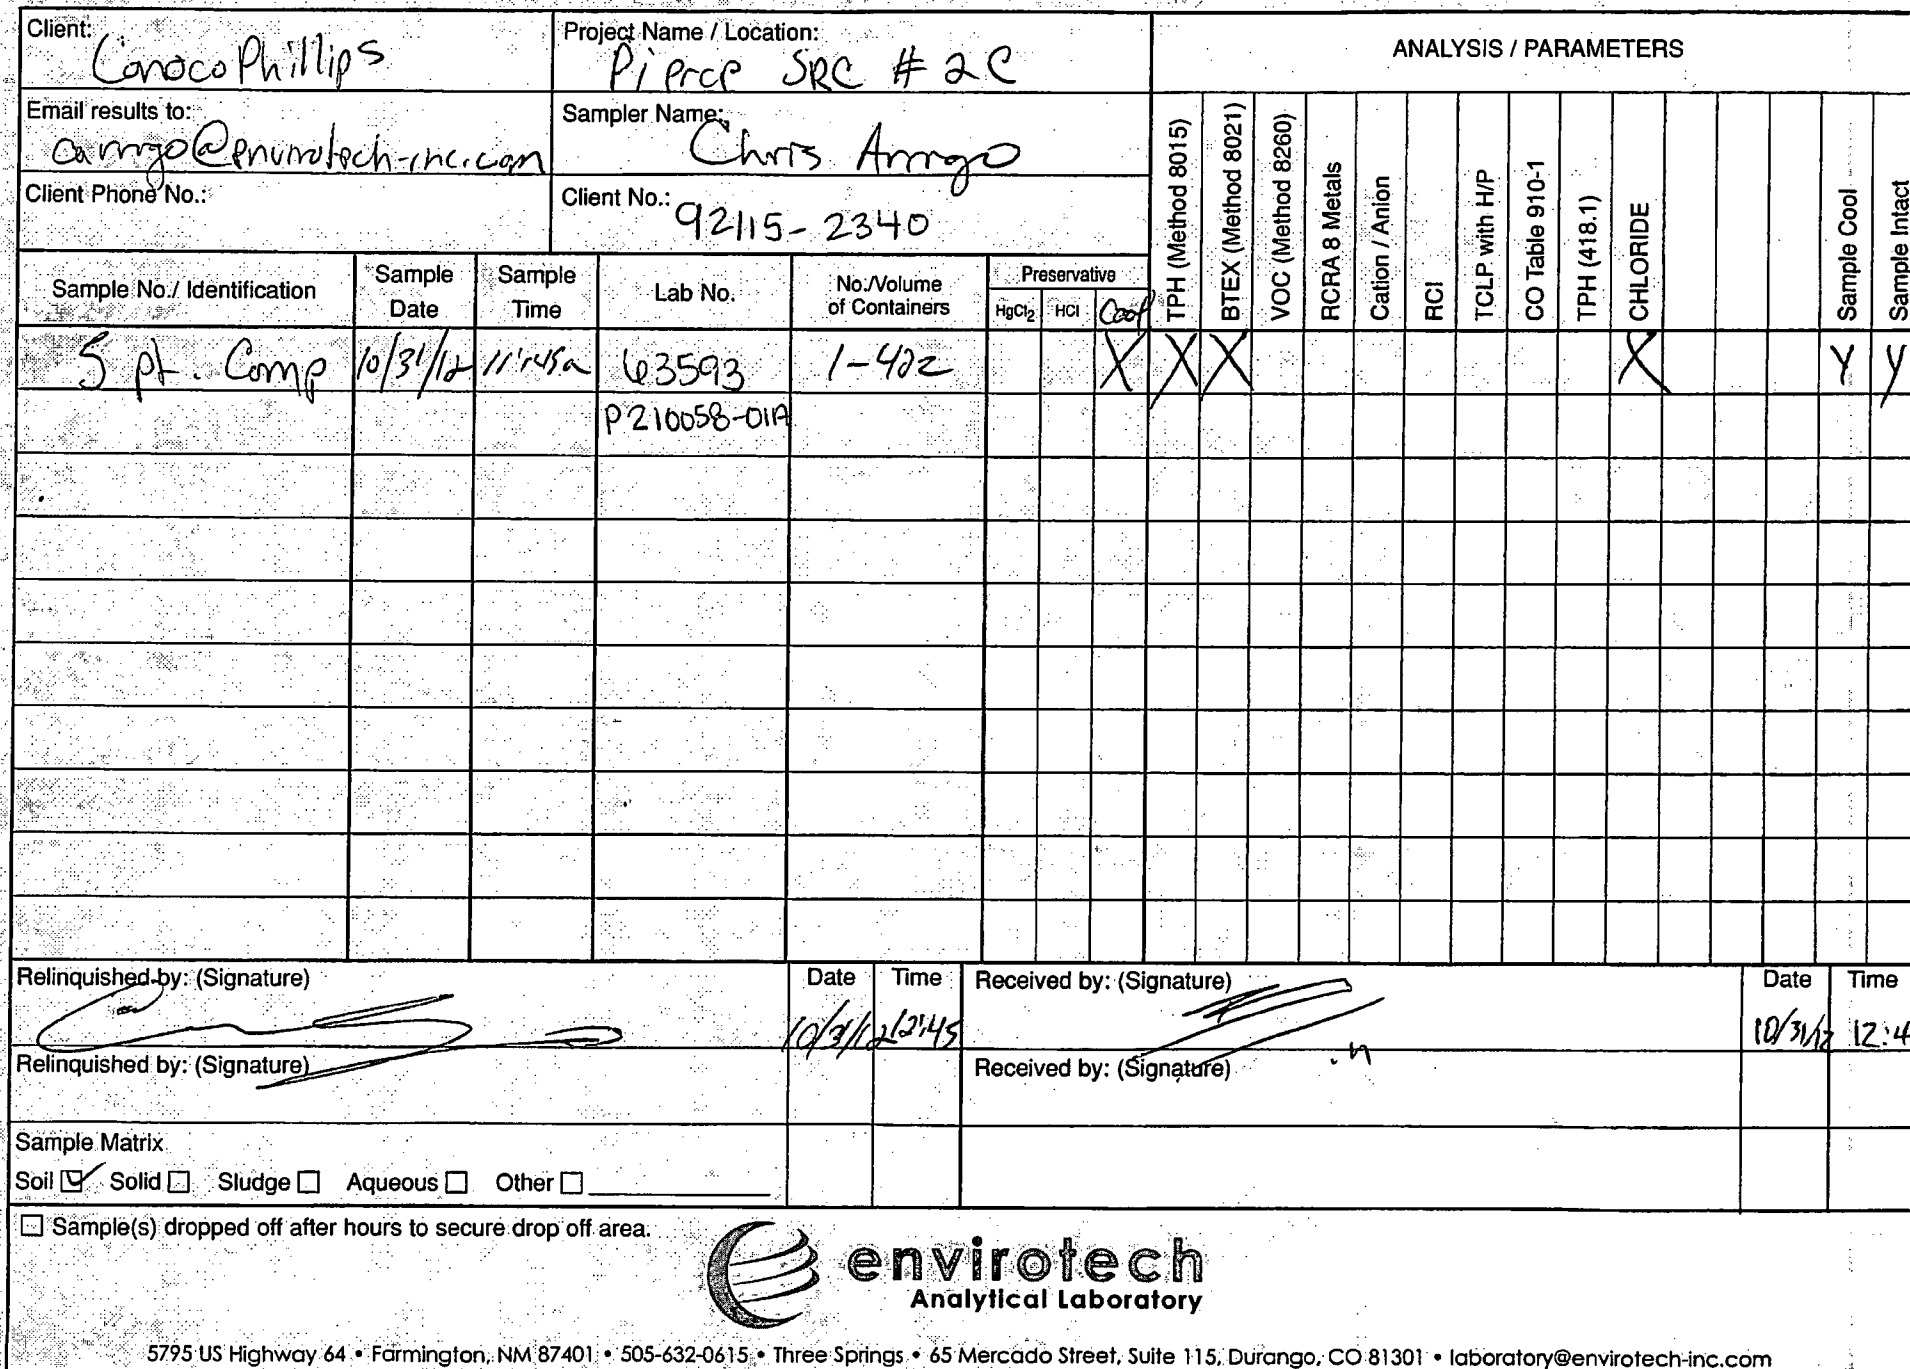 Client: ConocoPhillips
Project Name / Location: Pierce SRC # 2C
ANALYSIS / PARAMETERS
Email results to:
Sampler Name: Chris
Client Phone No.:
Client No.: 92115-2340
Sample No./ Identification
Sample Date
Sample Time
Lab No.
No./Volume of Containers
Preservative
HgCl2
HCl
Cool
TPH (Method 8015)
BTEX (Method 8021)
VOC (Method 8260)
RCRA 8 Metals
Cation / Anion
RCI
TCLP with H/P
CO Table 910-1
TPH (418.1)
CHLORIDE
Sample Cool
Sample Intact
5 pt. Comp 10/31/12 11:45a 63593 1-4oz X X X X Y Y
P210058-01A
Relinquished by: (Signature)
Date
Time
Received by: (Signature)
Date
Time
10/31/12 12:45
10/31/12 12:4
Relinquished by: (Signature)
Received by: (Signature)
Sample Matrix
Soil ☑ Solid ☐ Sludge ☐ Aqueous ☐ Other ☐
☐ Sample(s) dropped off after hours to secure drop off area.
envirotech
Analytical Laboratory
5795 US Highway 64 • Farmington, NM 87401 • 505-632-0615 • Three Springs • 65 Mercado Street, Suite 115, Durango, CO 81301 • laboratory@envirotech-inc.com